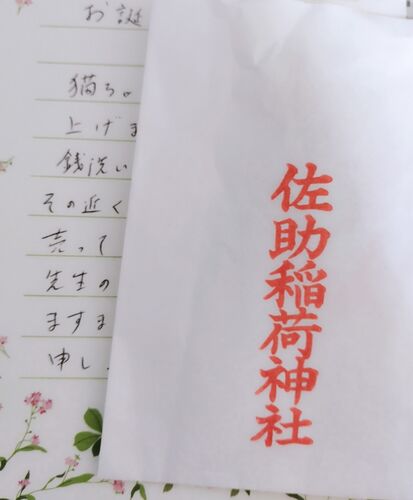 お誕
猫ろ。
上げま
銭洗い
その近く
売って
先生の
ますま
申し
佐助稲荷神社